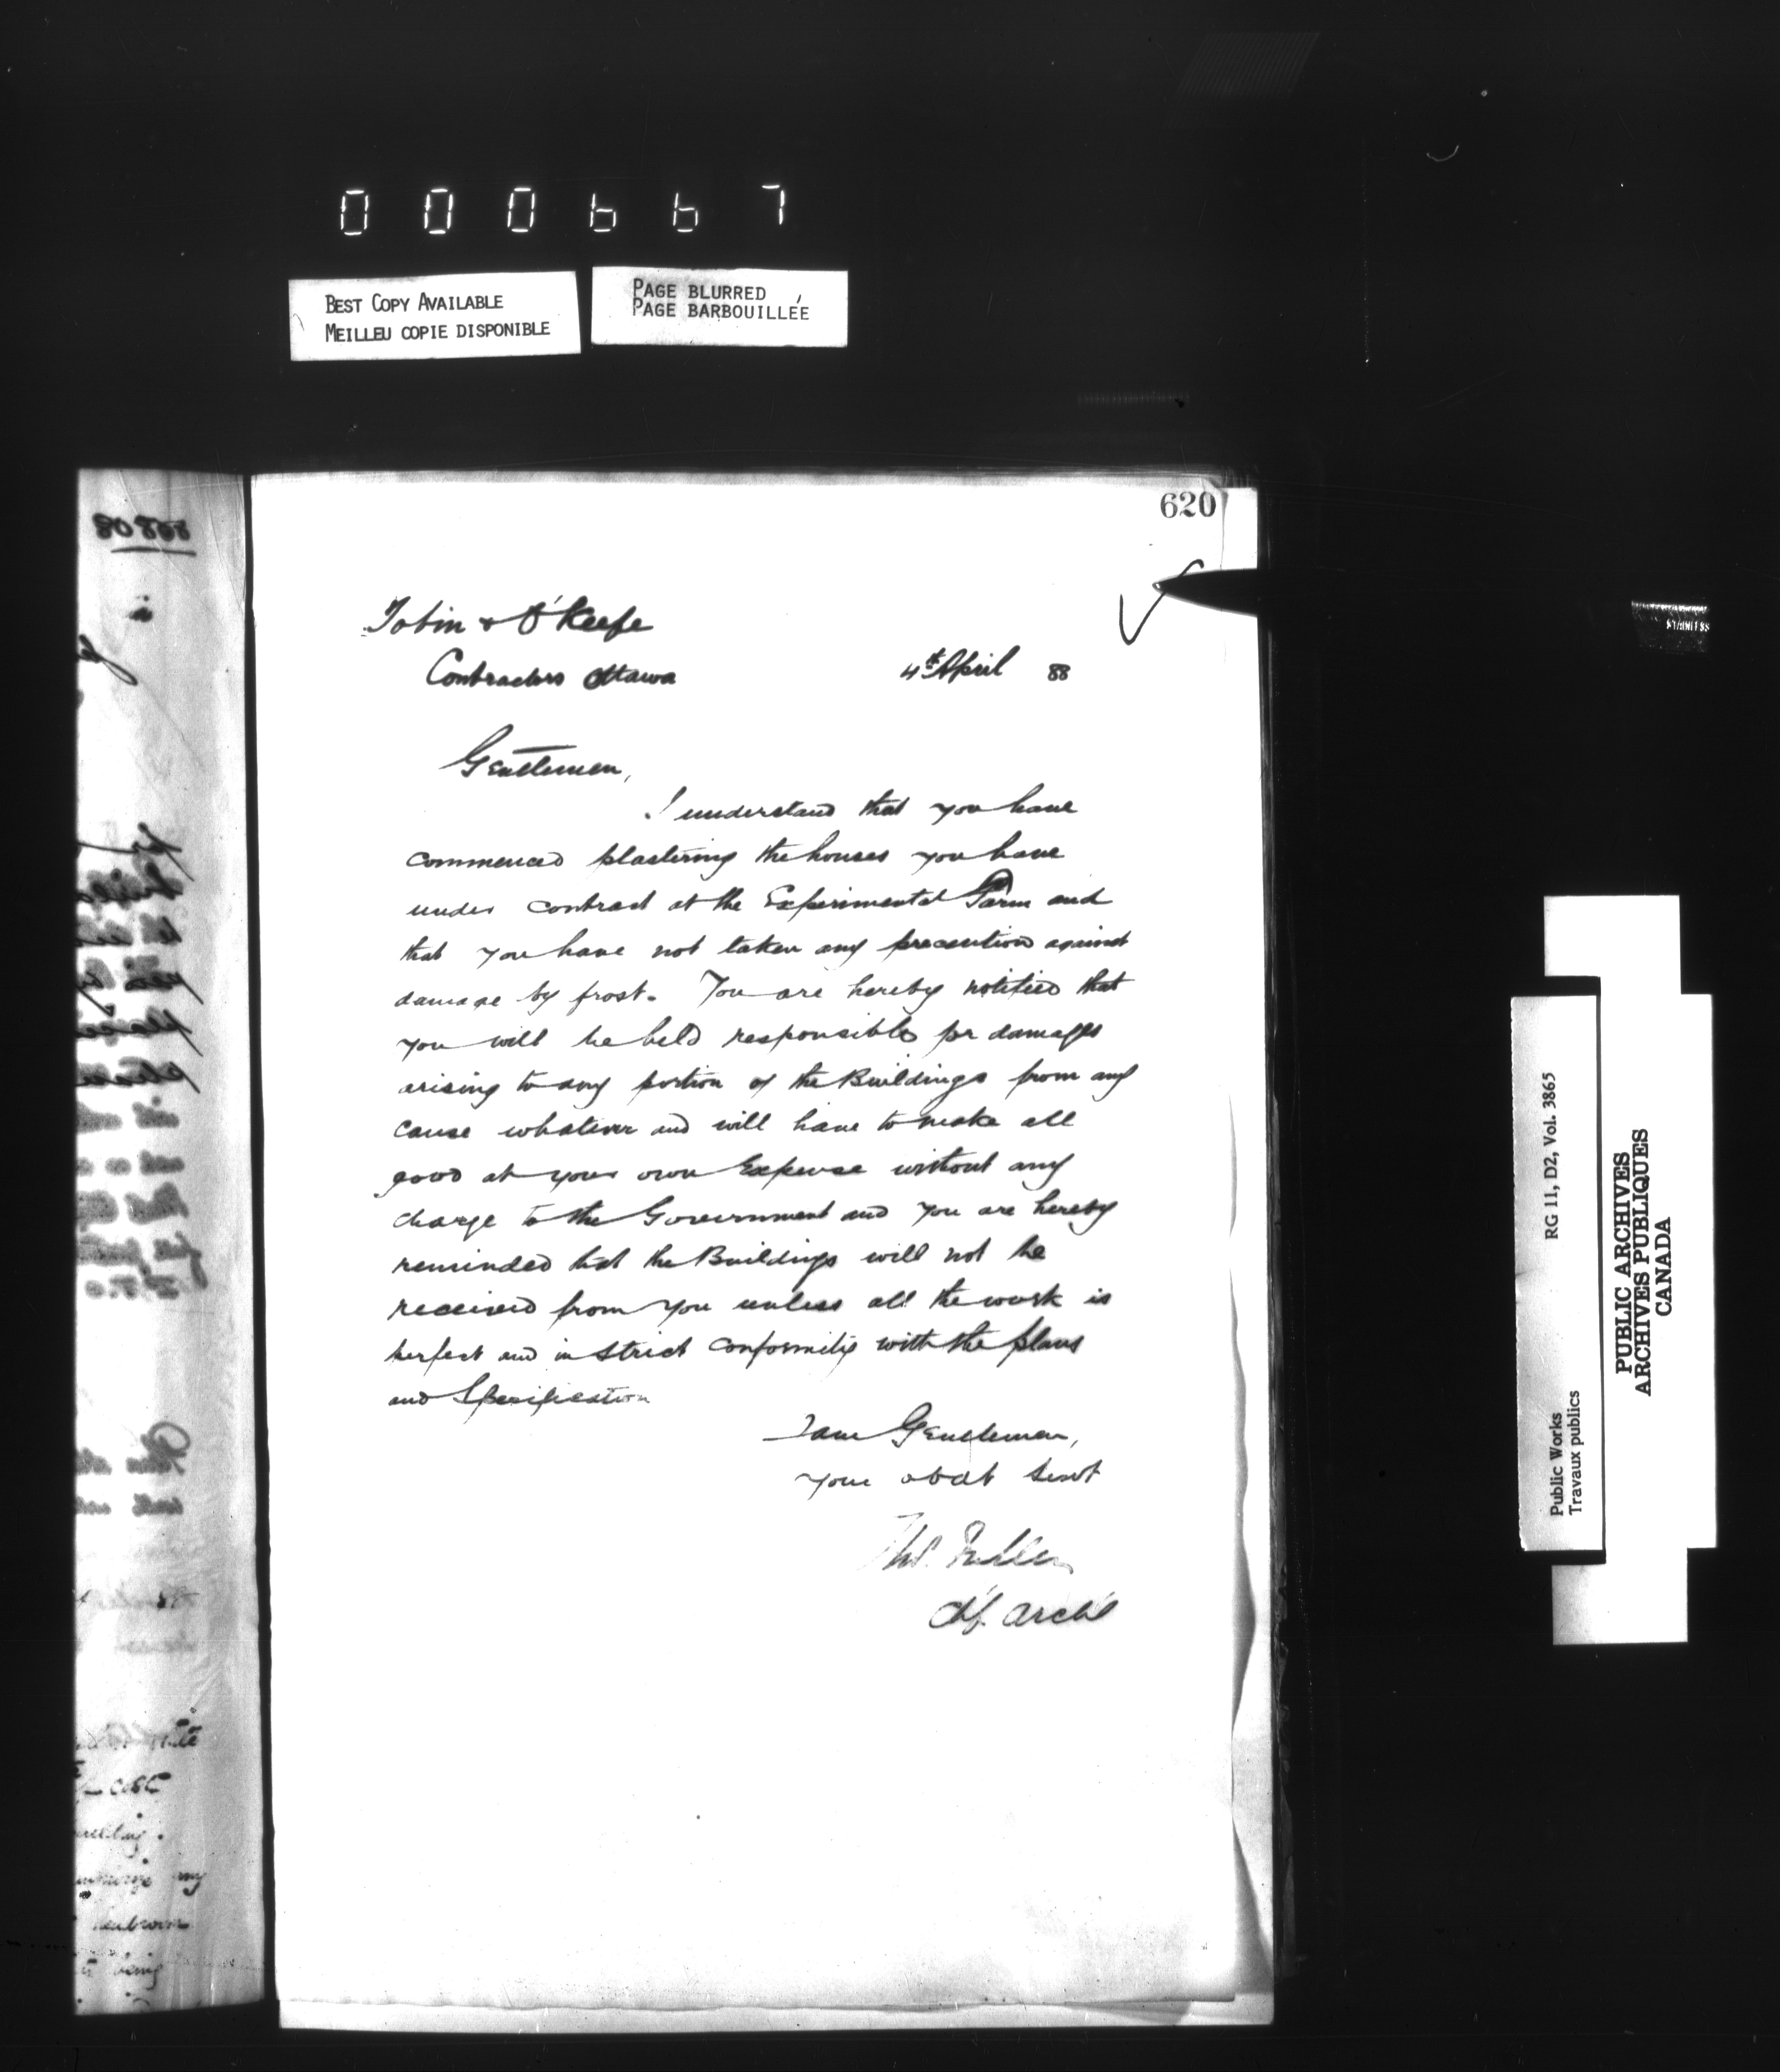 000667
BEST COPY AVAILABLE
MEILLEU COPIE DISPONIBLE
PAGE BLURRED
PAGE BARBOUILLÉE
620
Tobin & O'Keefe
Contractors Ottawa
4th April 88
Gentlemen,
I understand that you have
commenced plastering the houses you have
under contract at the Experimental Farm and
that you have not taken any precaution against
damage by frost. You are hereby notified that
you will be held responsible for damages
arising to any portion of the Buildings from any
cause whatever and will have to make all
good at your own Expense without any
charge to the Government and you are hereby
reminded that the Buildings will not be
received from you unless all the work is
perfect and in strict conformity with the plans
and Specification
I am Gentlemen,
your obdt servt
Thos. Fuller
Chf. Archt
80888
cost
any
being
STAINLESS
RG 11, D2, Vol. 3865
Public Works
Travaux publics
PUBLIC ARCHIVES
ARCHIVES PUBLIQUES
CANADA